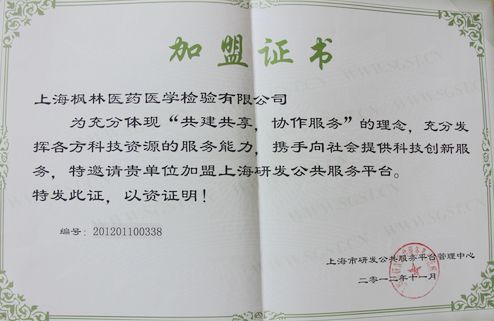 加盟证书
上海枫林医药医学检验有限公司
为充分体现“共建共享，协作服务”的理念，充分发
挥各方科技资源的服务能力，携手向社会提供科技创新服
务，特邀请贵单位加盟上海研发公共服务平台。
特发此证，以资证明！
编号：201201100338
上海市研发公共服务平台管理中心
二〇一二年十一月